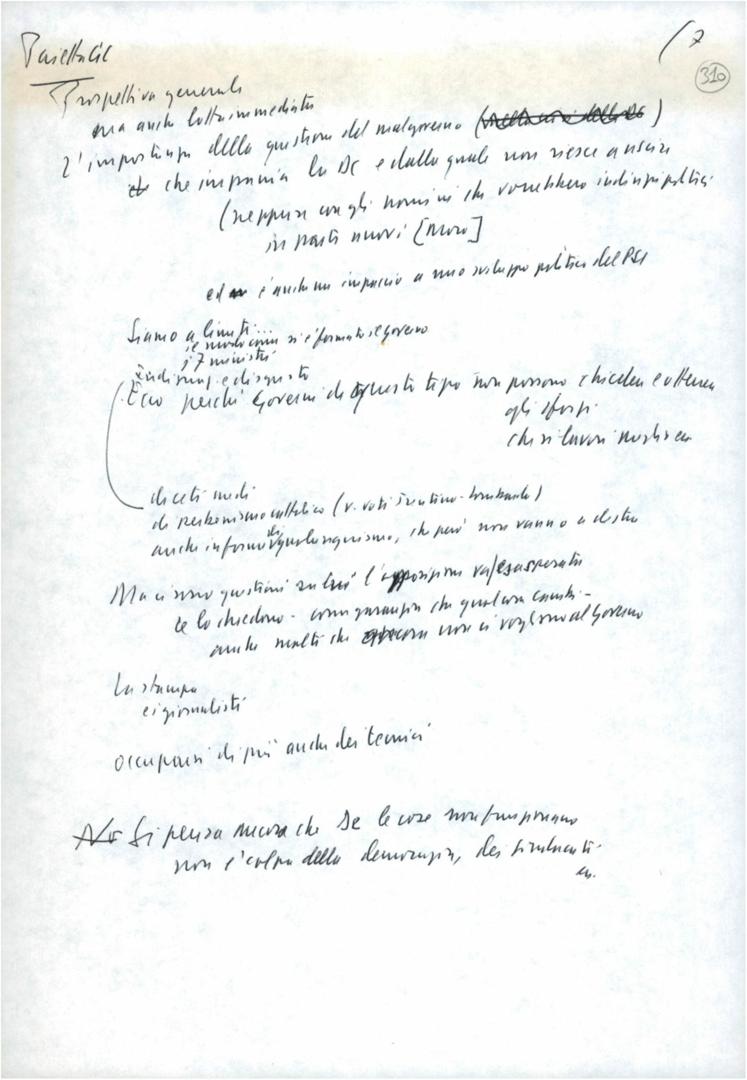 7
310
Pajetta G.C.
Prospettiva generale
ma anche lotta immediata
L'importanza della questione del malgoverno (nella crisi della Dc)
che impania la DC e dalla quale non riesce a uscire
(neppure con gli uomini che vorrebbero indirizzi politici
in parte nuovi [Moro]
ed è anche un impaccio a uno sviluppo politico del PSI
Siamo a limiti...
il modo come si è formato il governo
i 7 ministri
indirizzi e disgusto
Ecco perché Governi di questo tipo non possono chiedere e ottenere
gli sforzi
che si lavori
di ceti medi
di cattolico (v. voti
anche in forme di qualunquismo, che però non vanno a destra
Ma ci sono questioni su cui l'opposizione va esasperata
te lo chiedono - come garanzia che qualcosa cambi -
anche molti che ancora non ci vogliono al Governo
La stampa
e i giornalisti
occuparsi di più anche dei tecnici
No Si pensa ancora che se le cose non funzionano
non è colpa della democrazia, dei sindacati
ecc.